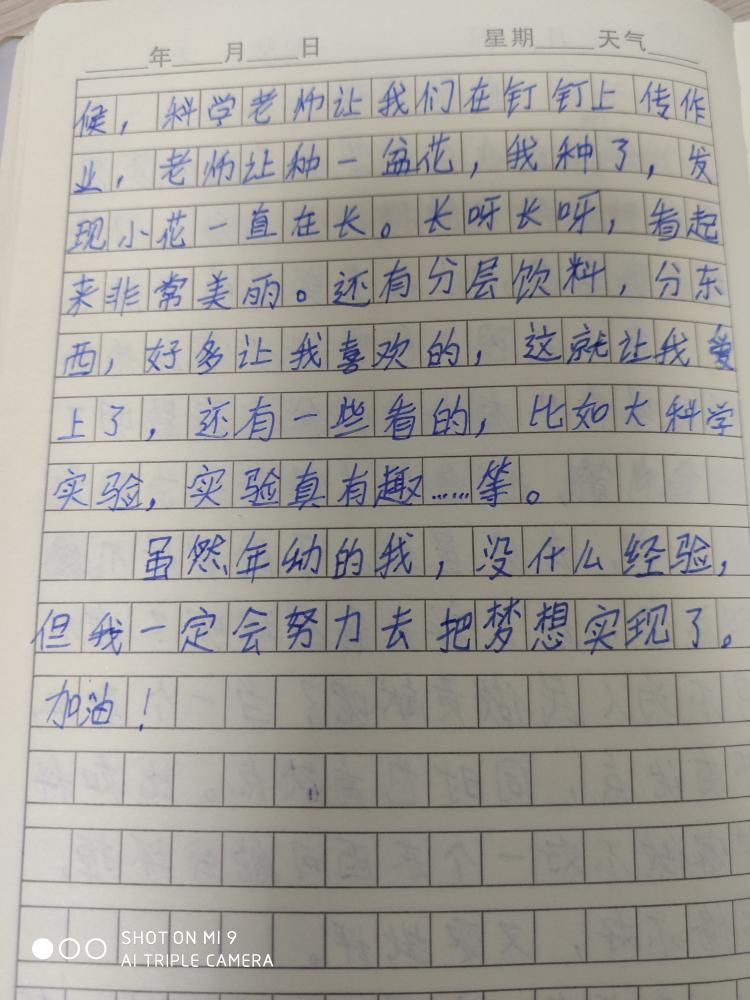 年 月 日 星期 天气
候，科学老师让我们在钉钉上传作
业，老师让种一盆花，我种了，发
现小花一直在长。长呀长呀，看起
来非常美丽。还有分层饮料，分东
西，好多让我喜欢的，这就让我爱
上了，还有一些看的，比如大科学
实验，实验真有趣……等。
虽然年幼的我，没什么经验，
但我一定会努力去把梦想实现了。
加油！
SHOT ON MI 9
AI TRIPLE CAMERA